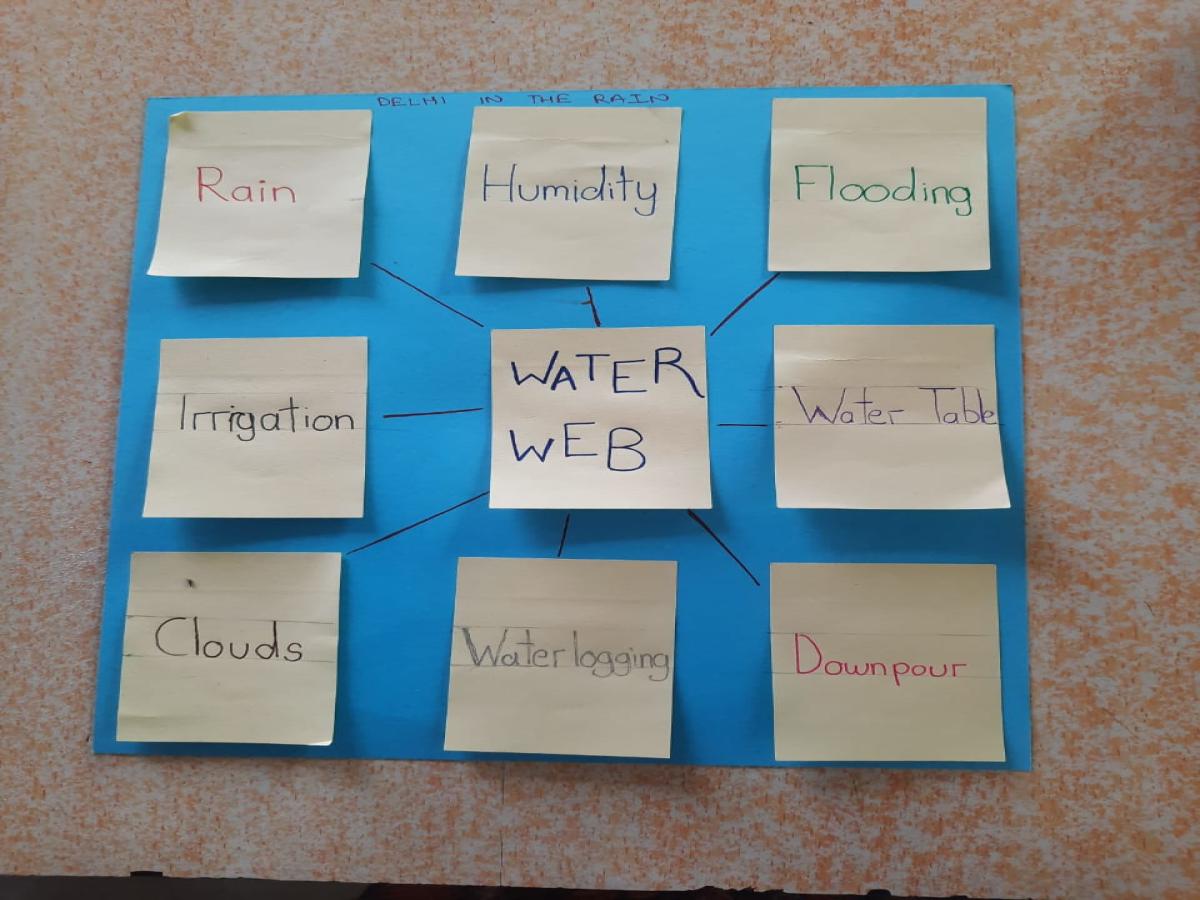 DELHI IN THE RAIN
Rain
Humidity
Flooding
Irrigation
WATER
WEB
Water Table
Clouds
Water logging
Downpour